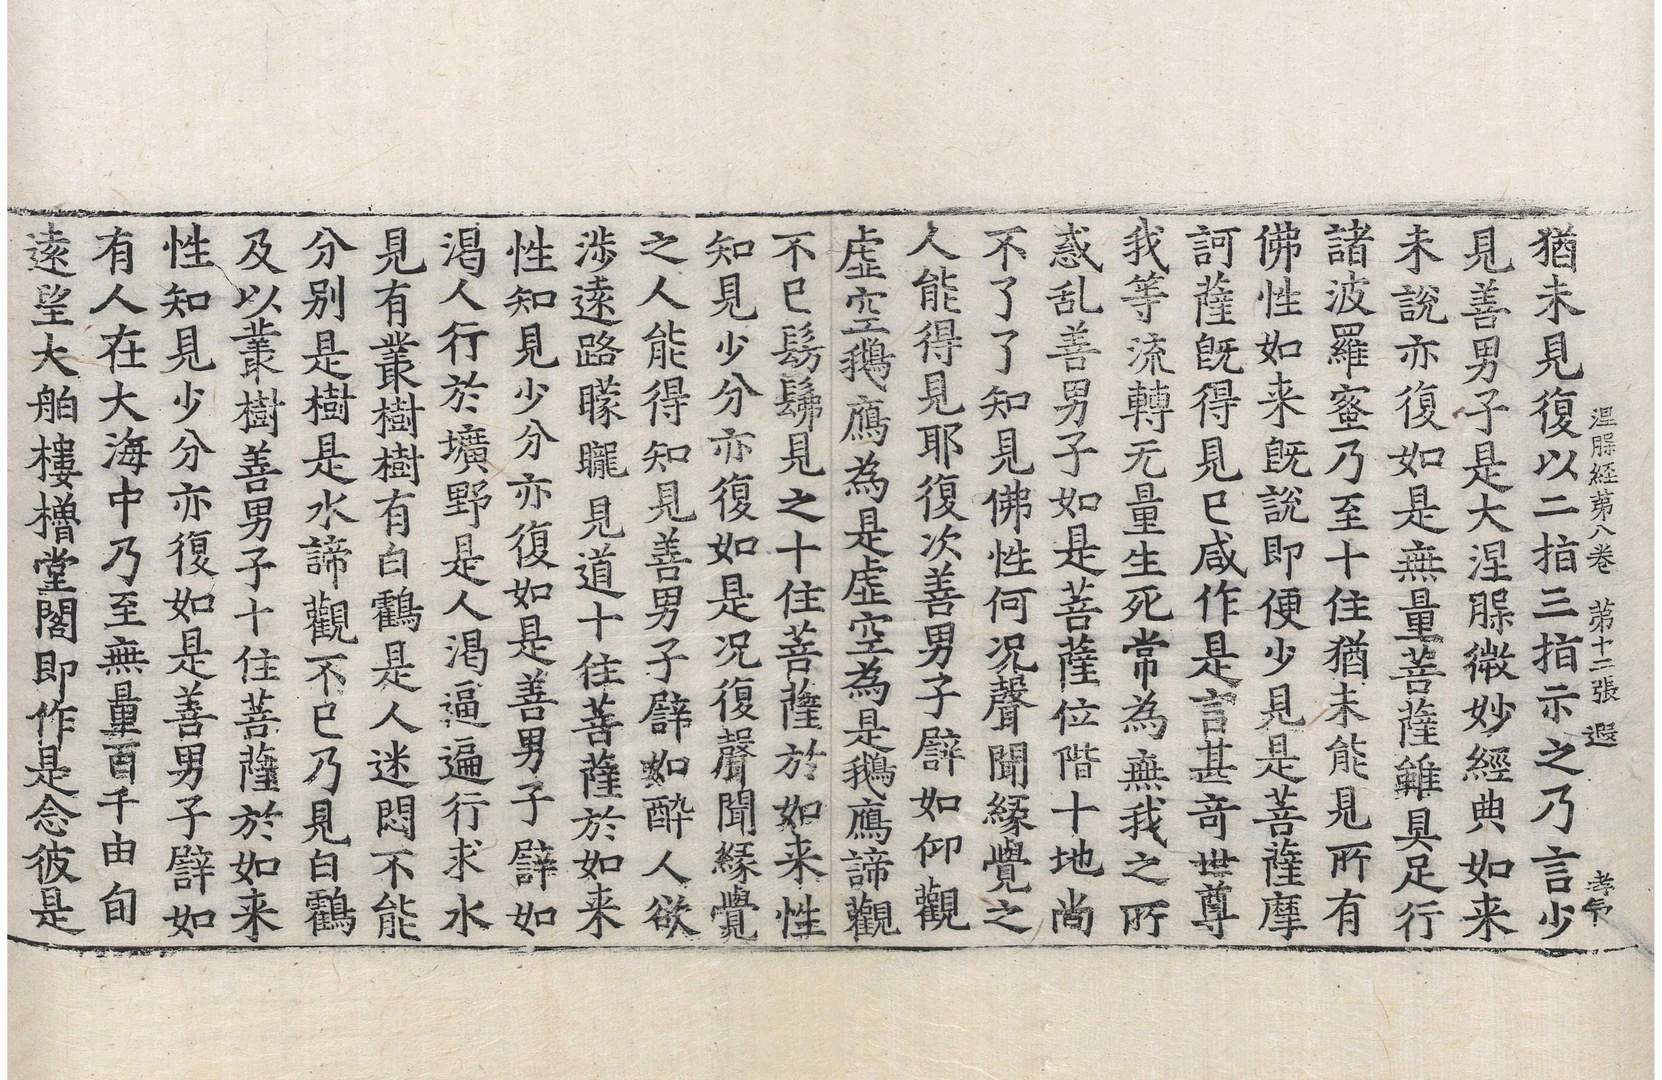 涅槃経苐八巻 苐十二張 遐 孝䒭
猶未見復以二指三指示之乃言少
見善男子是大涅槃微妙經典如来
未說亦復如是無量菩薩雖具足行
諸波羅蜜乃至十住猶未能見所有
佛性如来旣說即便少見是菩薩摩
訶薩旣得見已咸作是言甚竒世尊
我等流轉无量生死常為無我之所
惑乱善男子如是菩薩位階十地尚
不了了知見佛性何况聲聞緣覺之
人能得見耶復次善男子譬如仰觀
虛空鵝鴈為是虛空為是鵝鴈諦觀
不已髣髴見之十住菩薩於如来性
知見少分亦復如是况復聲聞緣覺
之人能得知見善男子譬如醉人欲
涉遠路矇矓見道十住菩薩於如来
性知見少分亦復如是善男子譬如
渴人行於壙野是人渴逼遍行求水
見有叢樹樹有白鶴是人迷悶不能
分別是樹是水諦觀不已乃見白鶴
及以叢樹善男子十住菩薩於如来
性知見少分亦復如是善男子譬如
有人在大海中乃至無量百千由旬
遠望大舶樓櫓堂閣即作是念彼是